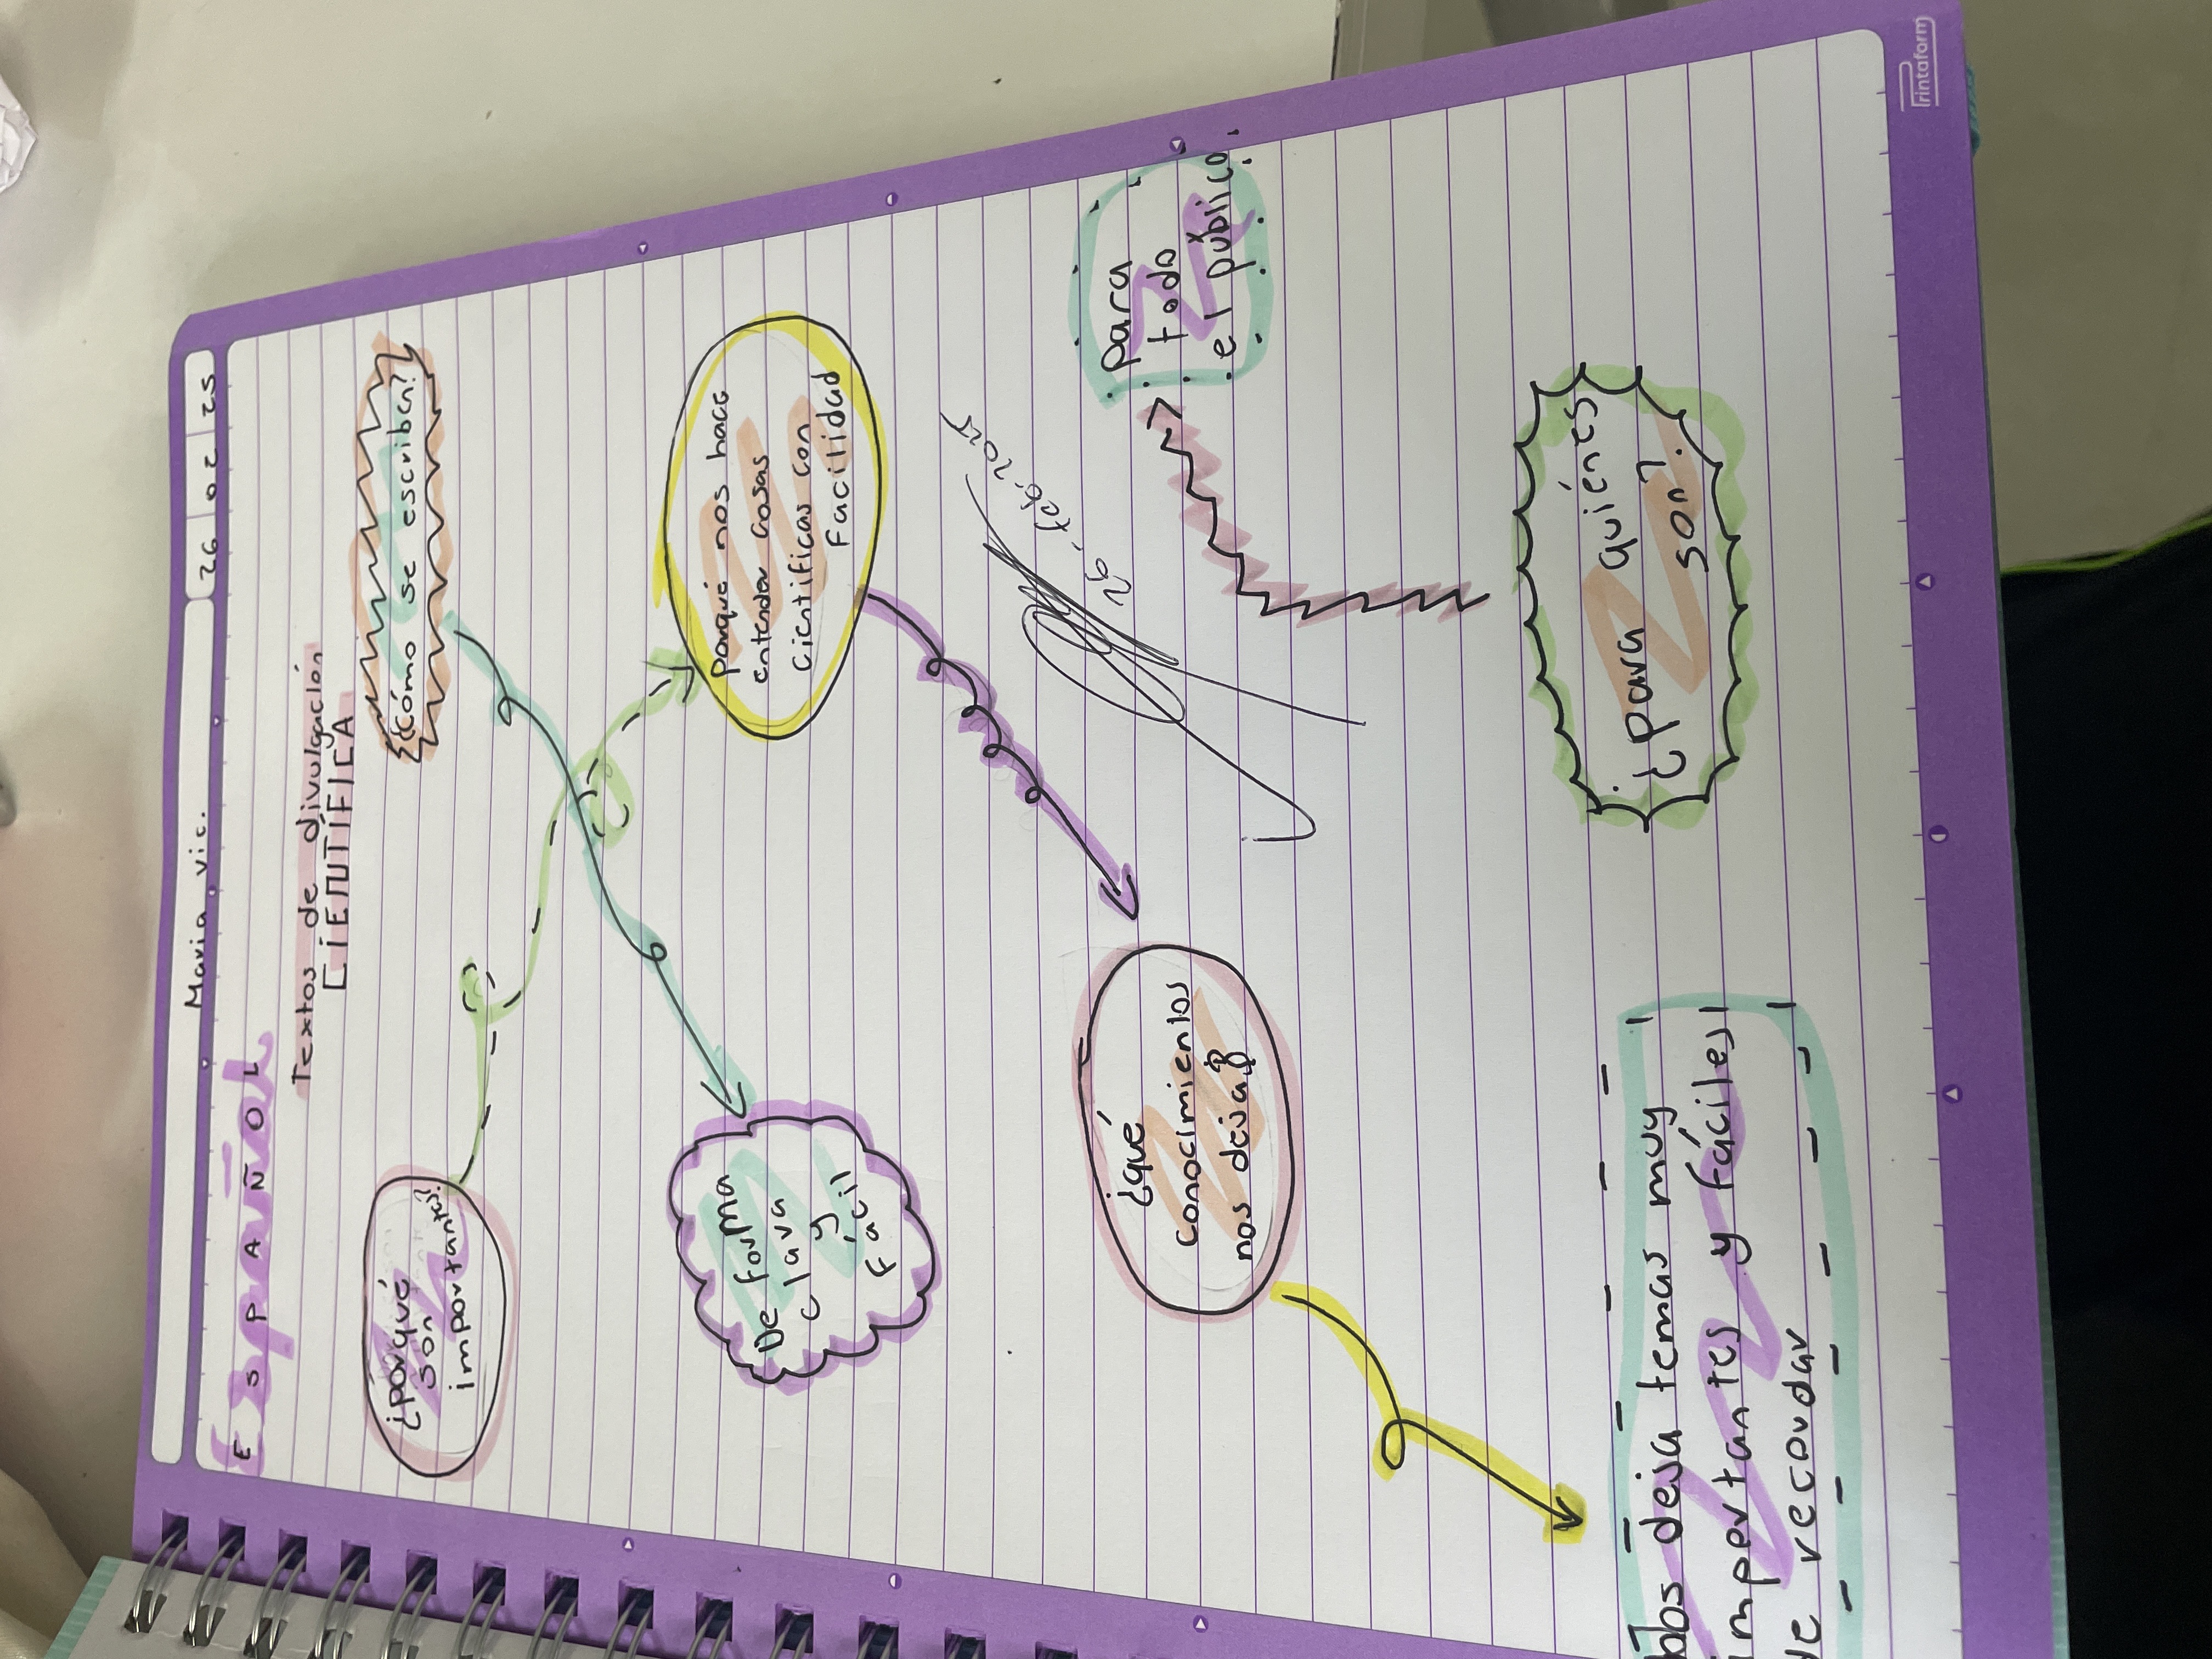 Maria vic.
26 02 25
ESPAÑOL
Textos de divulgación
CIENTÍFICA
¿porqué
son
importantes?
¿Cómo se escriben?
De forma
clara
y
Fácil
Porqué nos hace
entender cosas
Cientificas con
Facilidad
26-feb-2025
¿qué
conocimientos
nos deja?
Para
todo
el público
¿Para quiénes
son?
Nos deja temas muy
importantes y fáciles
de recordar
Printaform